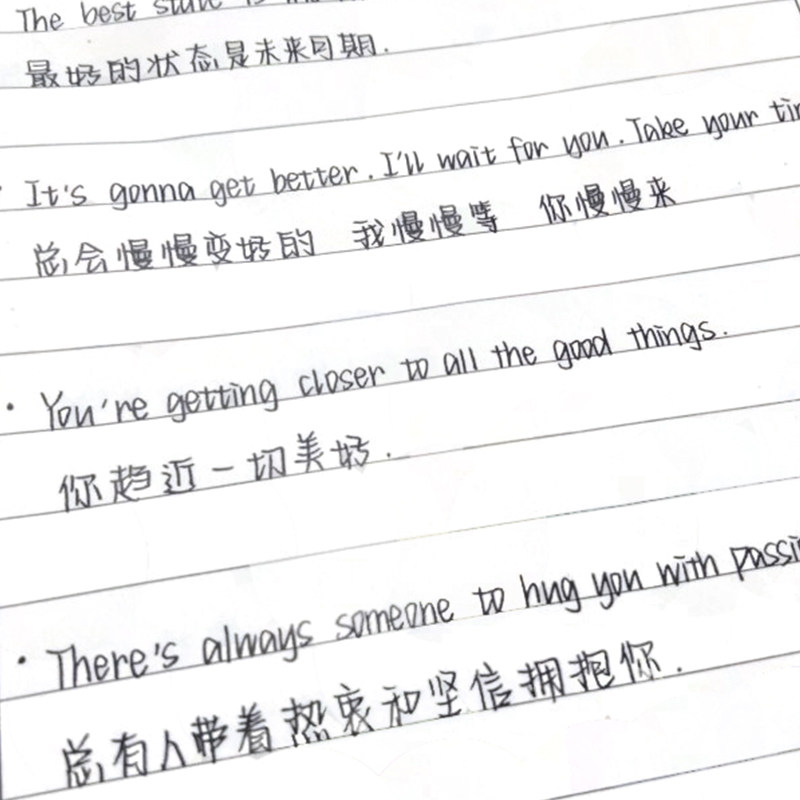 The best
最好的状态是未来可期.
· It's gonna get better. I'll wait for you. Take your
总会慢慢变好的 我慢慢等 你慢慢来
· You're getting closer to all the good things.
你趋近一切美好.
· There's always someone to hug you with
总有人带着热衷和坚信拥抱你.